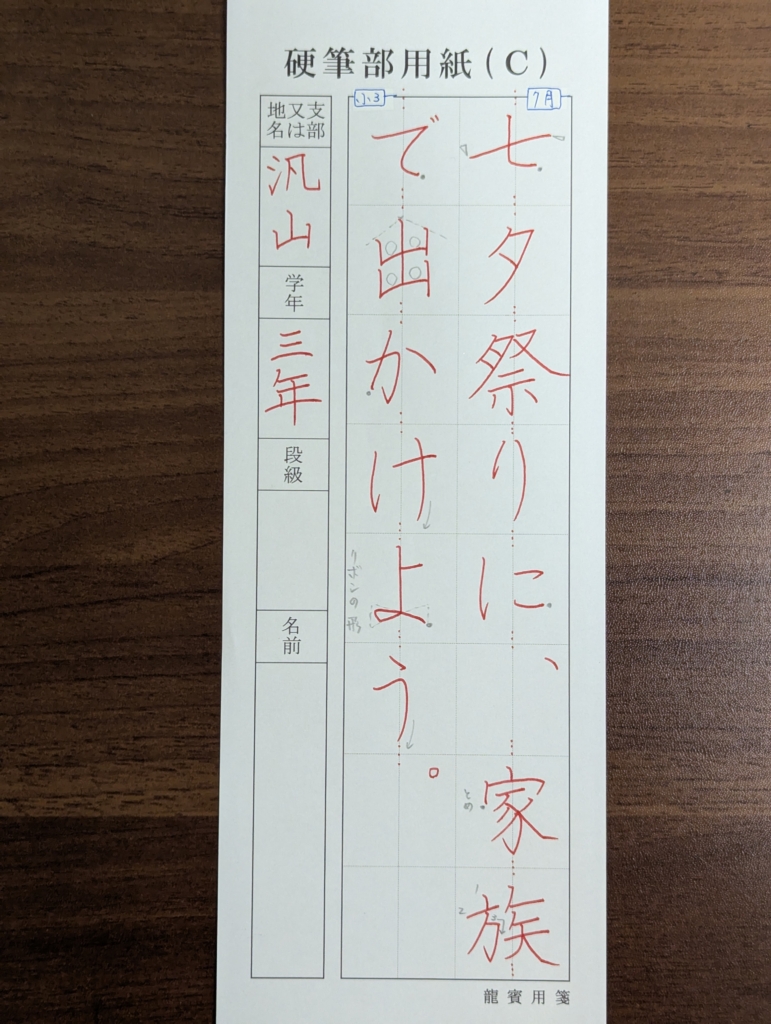 硬筆部用紙(C)
7月
七夕祭りに、家族
小3
で出かけよう。
とめ
1
2
リボンの形
支部
又は
地名
汎山
学年
三年
段級
名前
龍賓用箋